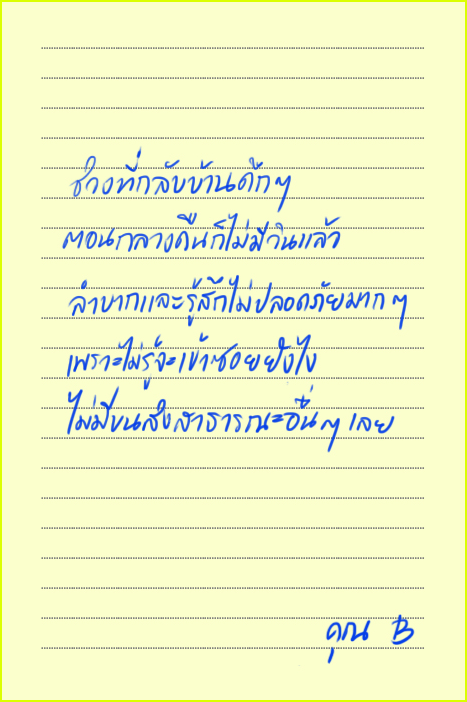 ช่วงที่กลับบ้านดึกๆ
ตอนกลางคืนก็ไม่มีวินแล้ว
ลำบากและรู้สึกไม่ปลอดภัยมากๆ
เพราะไม่รู้จะเข้าซอยยังไง
ไม่มีขนส่งสาธารณะอื่นๆเลย
คุณ B